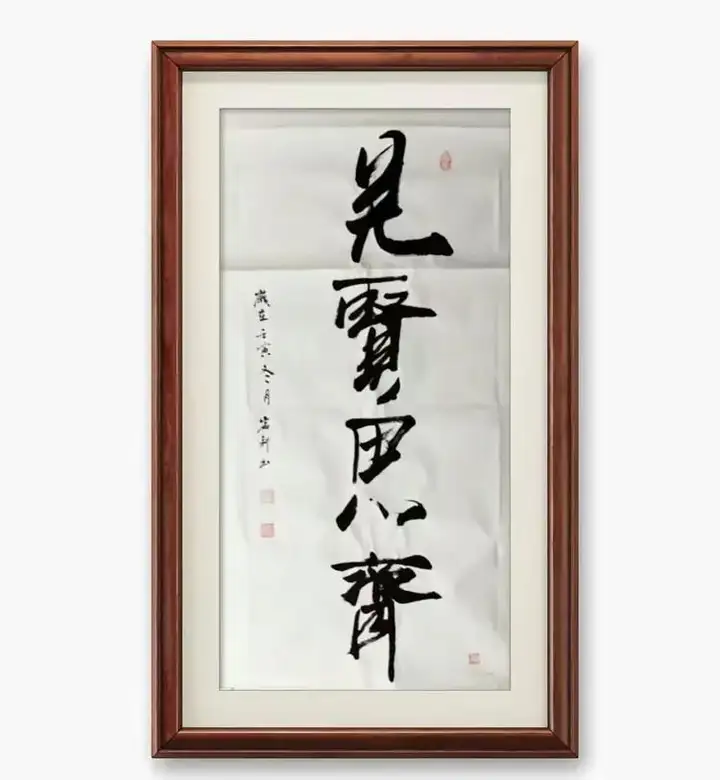 見賢思齊
歲在壬寅冬月